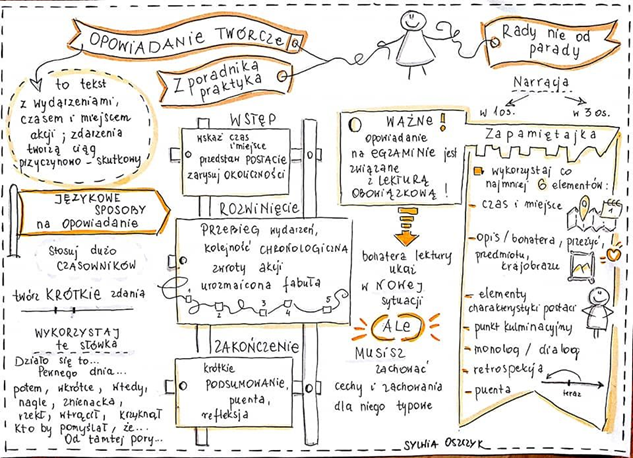 OPOWIADANIE TWÓRCZE
Z poradnika
praktyka
Rady nie od
parady
to tekst
z wydarzeniami,
czasem i miejscem
akcji; zdarzenia
tworzą ciąg
przyczynowo-skutkowy
JĘZYKOWE
SPOSOBY
na OPOWIADANIE
Stosuj dużo
CZASOWNIKÓW
twórz KRÓTKIE zdania
WYKORZYSTAJ
te słówka
Działo się to...
Pewnego dnia...
potem, wkrótce, wtedy,
nagle, znienacka,
rzekł, wtrącił, krzyknął
Kto by pomyślał, że...
Od tamtej pory...
WSTĘP
wskaż czas
i miejsce
przedstaw POSTACIE
zarysuj OKOLICZNOŚCI
ROZWINIĘCIE
PRZEBIEG wydarzeń,
kolejność CHRONOLOGICZNA
zwroty akcji
urozmaicona fabuła
1 2 3 4 5
ZAKOŃCZENIE
krótkie
PODSUMOWANIE,
puenta,
refleksja
WAŻNE !
opowiadanie
na EGZAMINIE jest
związane
z LEKTURĄ
OBOWIĄZKOWĄ !
bohatera lektury
ukaż
w NOWEJ
sytuacji
ALE
MUSISZ
zachować
cechy i zachowania
dla niego typowe
Narracja
w 1 os. w 3 os.
Zapamiętajka
wykorzystaj co
najmniej 6 elementów:
- czas i miejsce
- opis / bohatera, przeżyć,
przedmiotu,
krajobrazu
- elementy
charakterystyki postaci
- punkt kulminacyjny
- monolog / dialog
- retrospekcja
- puenta
teraz
SYLWIA OSZCZYK